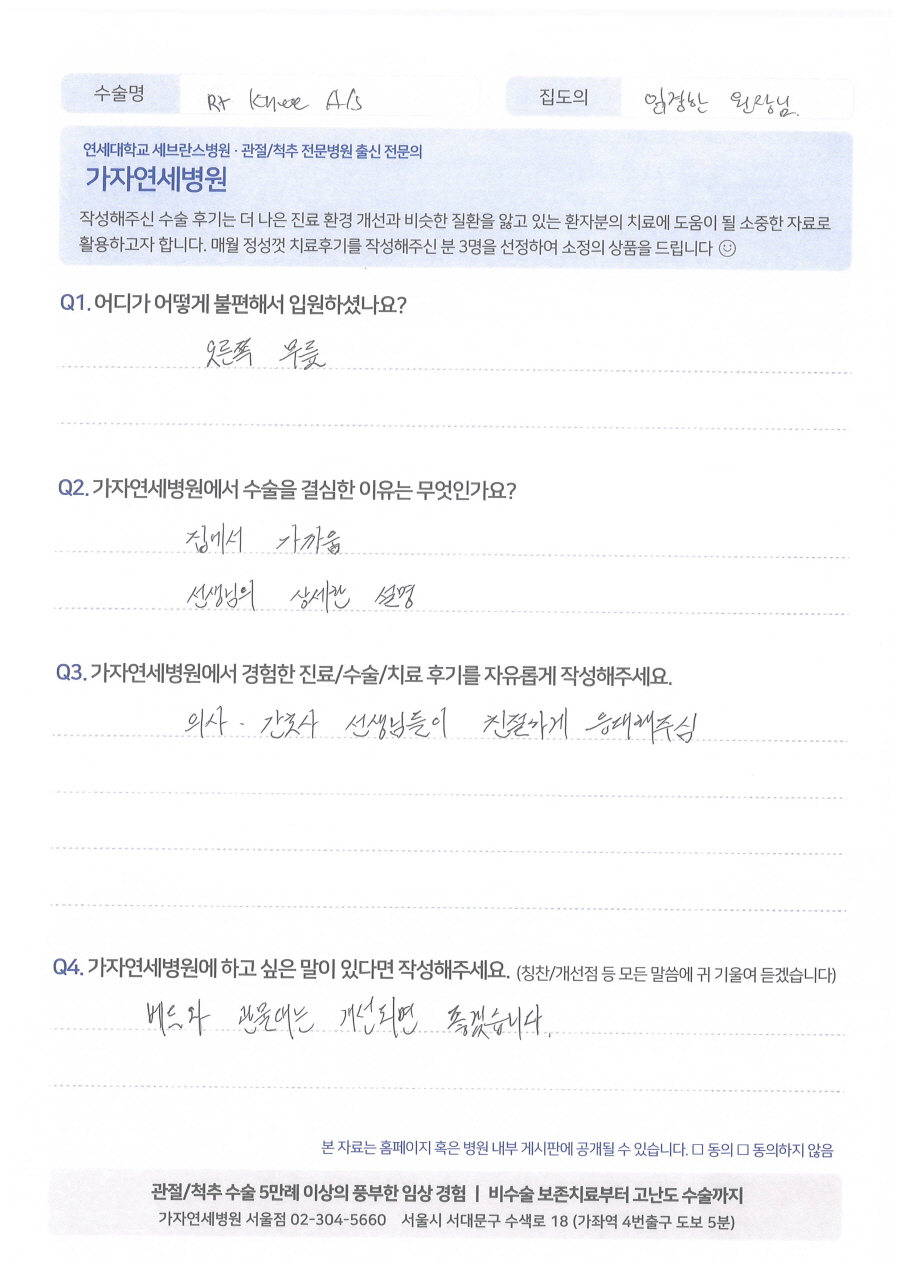 수술명 Rt Knee A/S 집도의 임경한 원장님.
연세대학교 세브란스병원 · 관절/척추 전문병원 출신 전문의
가자연세병원
작성해주신 수술 후기는 더 나은 진료 환경 개선과 비슷한 질환을 앓고 있는 환자분의 치료에 도움이 될 소중한 자료로
활용하고자 합니다. 매월 정성껏 치료후기를 작성해주신 분 3명을 선정하여 소정의 상품을 드립니다 ☺
Q1. 어디가 어떻게 불편해서 입원하셨나요?
오른쪽 무릎
Q2. 가자연세병원에서 수술을 결심한 이유는 무엇인가요?
집에서 가까움
선생님의 상세한 설명
Q3. 가자연세병원에서 경험한 진료/수술/치료 후기를 자유롭게 작성해주세요.
의사 · 간호사 선생님들이 친절하게 응대해주심
Q4. 가자연세병원에 하고 싶은 말이 있다면 작성해주세요. (칭찬/개선점 등 모든 말씀에 귀 기울여 듣겠습니다)
베드와 관물대는 개선되면 좋겠습니다.
본 자료는 홈페이지 혹은 병원 내부 게시판에 공개될 수 있습니다. □ 동의 □ 동의하지 않음
관절/척추 수술 5만례 이상의 풍부한 임상 경험 | 비수술 보존치료부터 고난도 수술까지
가자연세병원 서울점 02-304-5660 서울시 서대문구 수색로 18 (가좌역 4번출구 도보 5분)